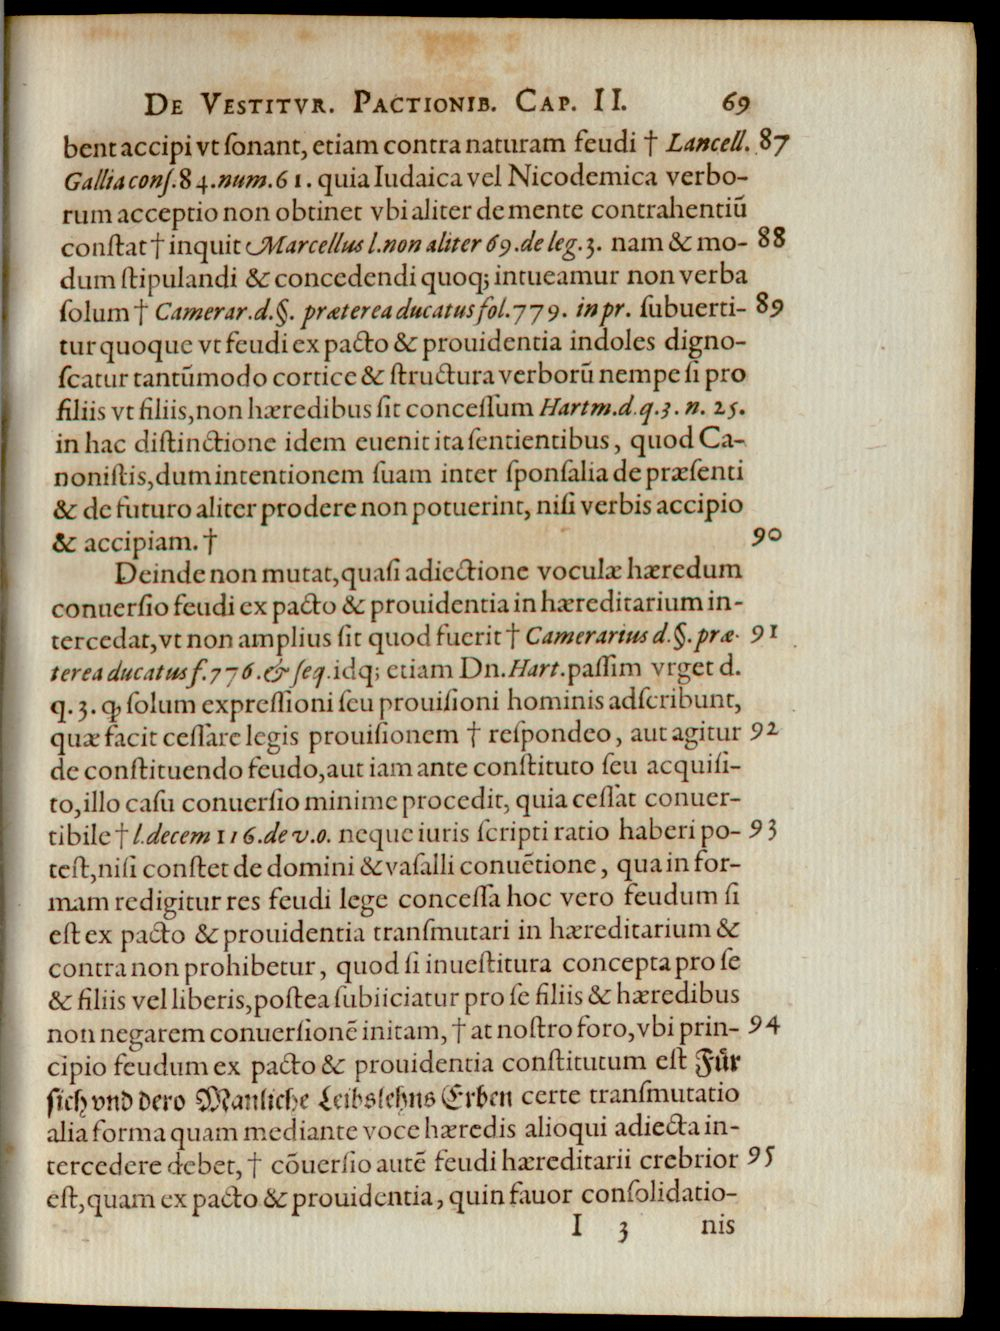 DE VESTITVR. PACTIONIB. CAP. II. 69
bent accipi vt ſonant, etiam contra naturam feudi † Lancell. 87
Gallia conſ. 84. num. 61. quia Iudaica vel Nicodemica verbo-
rum acceptio non obtinet vbi aliter de mente contrahentiū
conſtat † inquit Marcellus l. non aliter 69. de leg. 3. nam & mo- 88
dum ſtipulandi & concedendi quoq; intueamur non verba
ſolum † Camerar. d. §. præterea ducatus fol. 779. in pr. ſubuerti- 89
tur quoque vt feudi ex pacto & prouidentia indoles digno-
ſcatur tantūmodo cortice & ſtructura verborū nempe ſi pro
filiis vt filiis, non hæredibus ſit conceſſum Hartm. d. q. 3. n. 25.
in hac diſtinctione idem euenit ita ſentientibus, quod Ca-
noniſtis, dum intentionem ſuam inter ſponſalia de præſenti
& de futuro aliter prodere non potuerint, niſi verbis accipio
& accipiam. † 90
Deinde non mutat, quaſi adiectione voculæ hæredum
conuerſio feudi ex pacto & prouidentia in hæreditarium in-
tercedat, vt non amplius ſit quod fuerit † Camerarius d. §. præ- 91
terea ducatus f. 776. & ſeq. idq; etiam Dn. Hart. paſſim vrget d.
q. 3. ꝙ ſolum expreſſioni ſeu prouiſioni hominis adſcribunt,
quæ facit ceſſare legis prouiſionem † reſpondeo, aut agitur 92
de conſtituendo feudo, aut iam ante conſtituto ſeu acquiſi-
to, illo caſu conuerſio minime procedit, quia ceſſat conuer-
tibile † l. decem 116. de v. o. neque iuris ſcripti ratio haberi po- 93
teſt, niſi conſtet de domini & vaſalli conuētione, qua in for-
mam redigitur res feudi lege conceſſa hoc vero feudum ſi
eſt ex pacto & prouidentia tranſmutari in hæreditarium &
contra non prohibetur, quod ſi inueſtitura concepta pro ſe
& filiis vel liberis, poſtea ſubiiciatur pro ſe filiis & hæredibus
non negarem conuerſionē initam, † at noſtro foro, vbi prin- 94
cipio feudum ex pacto & prouidentia conſtitutum eſt Fuͤr
ſich vnd dero Manliche Leibslehns Erben certe tranſmutatio
alia forma quam mediante voce hæredis alioqui adiecta in-
tercedere debet, † cōuerſio autē feudi hæreditarii crebrior 95
eſt, quam ex pacto & prouidentia, quin fauor conſolidatio-
I 3 nis